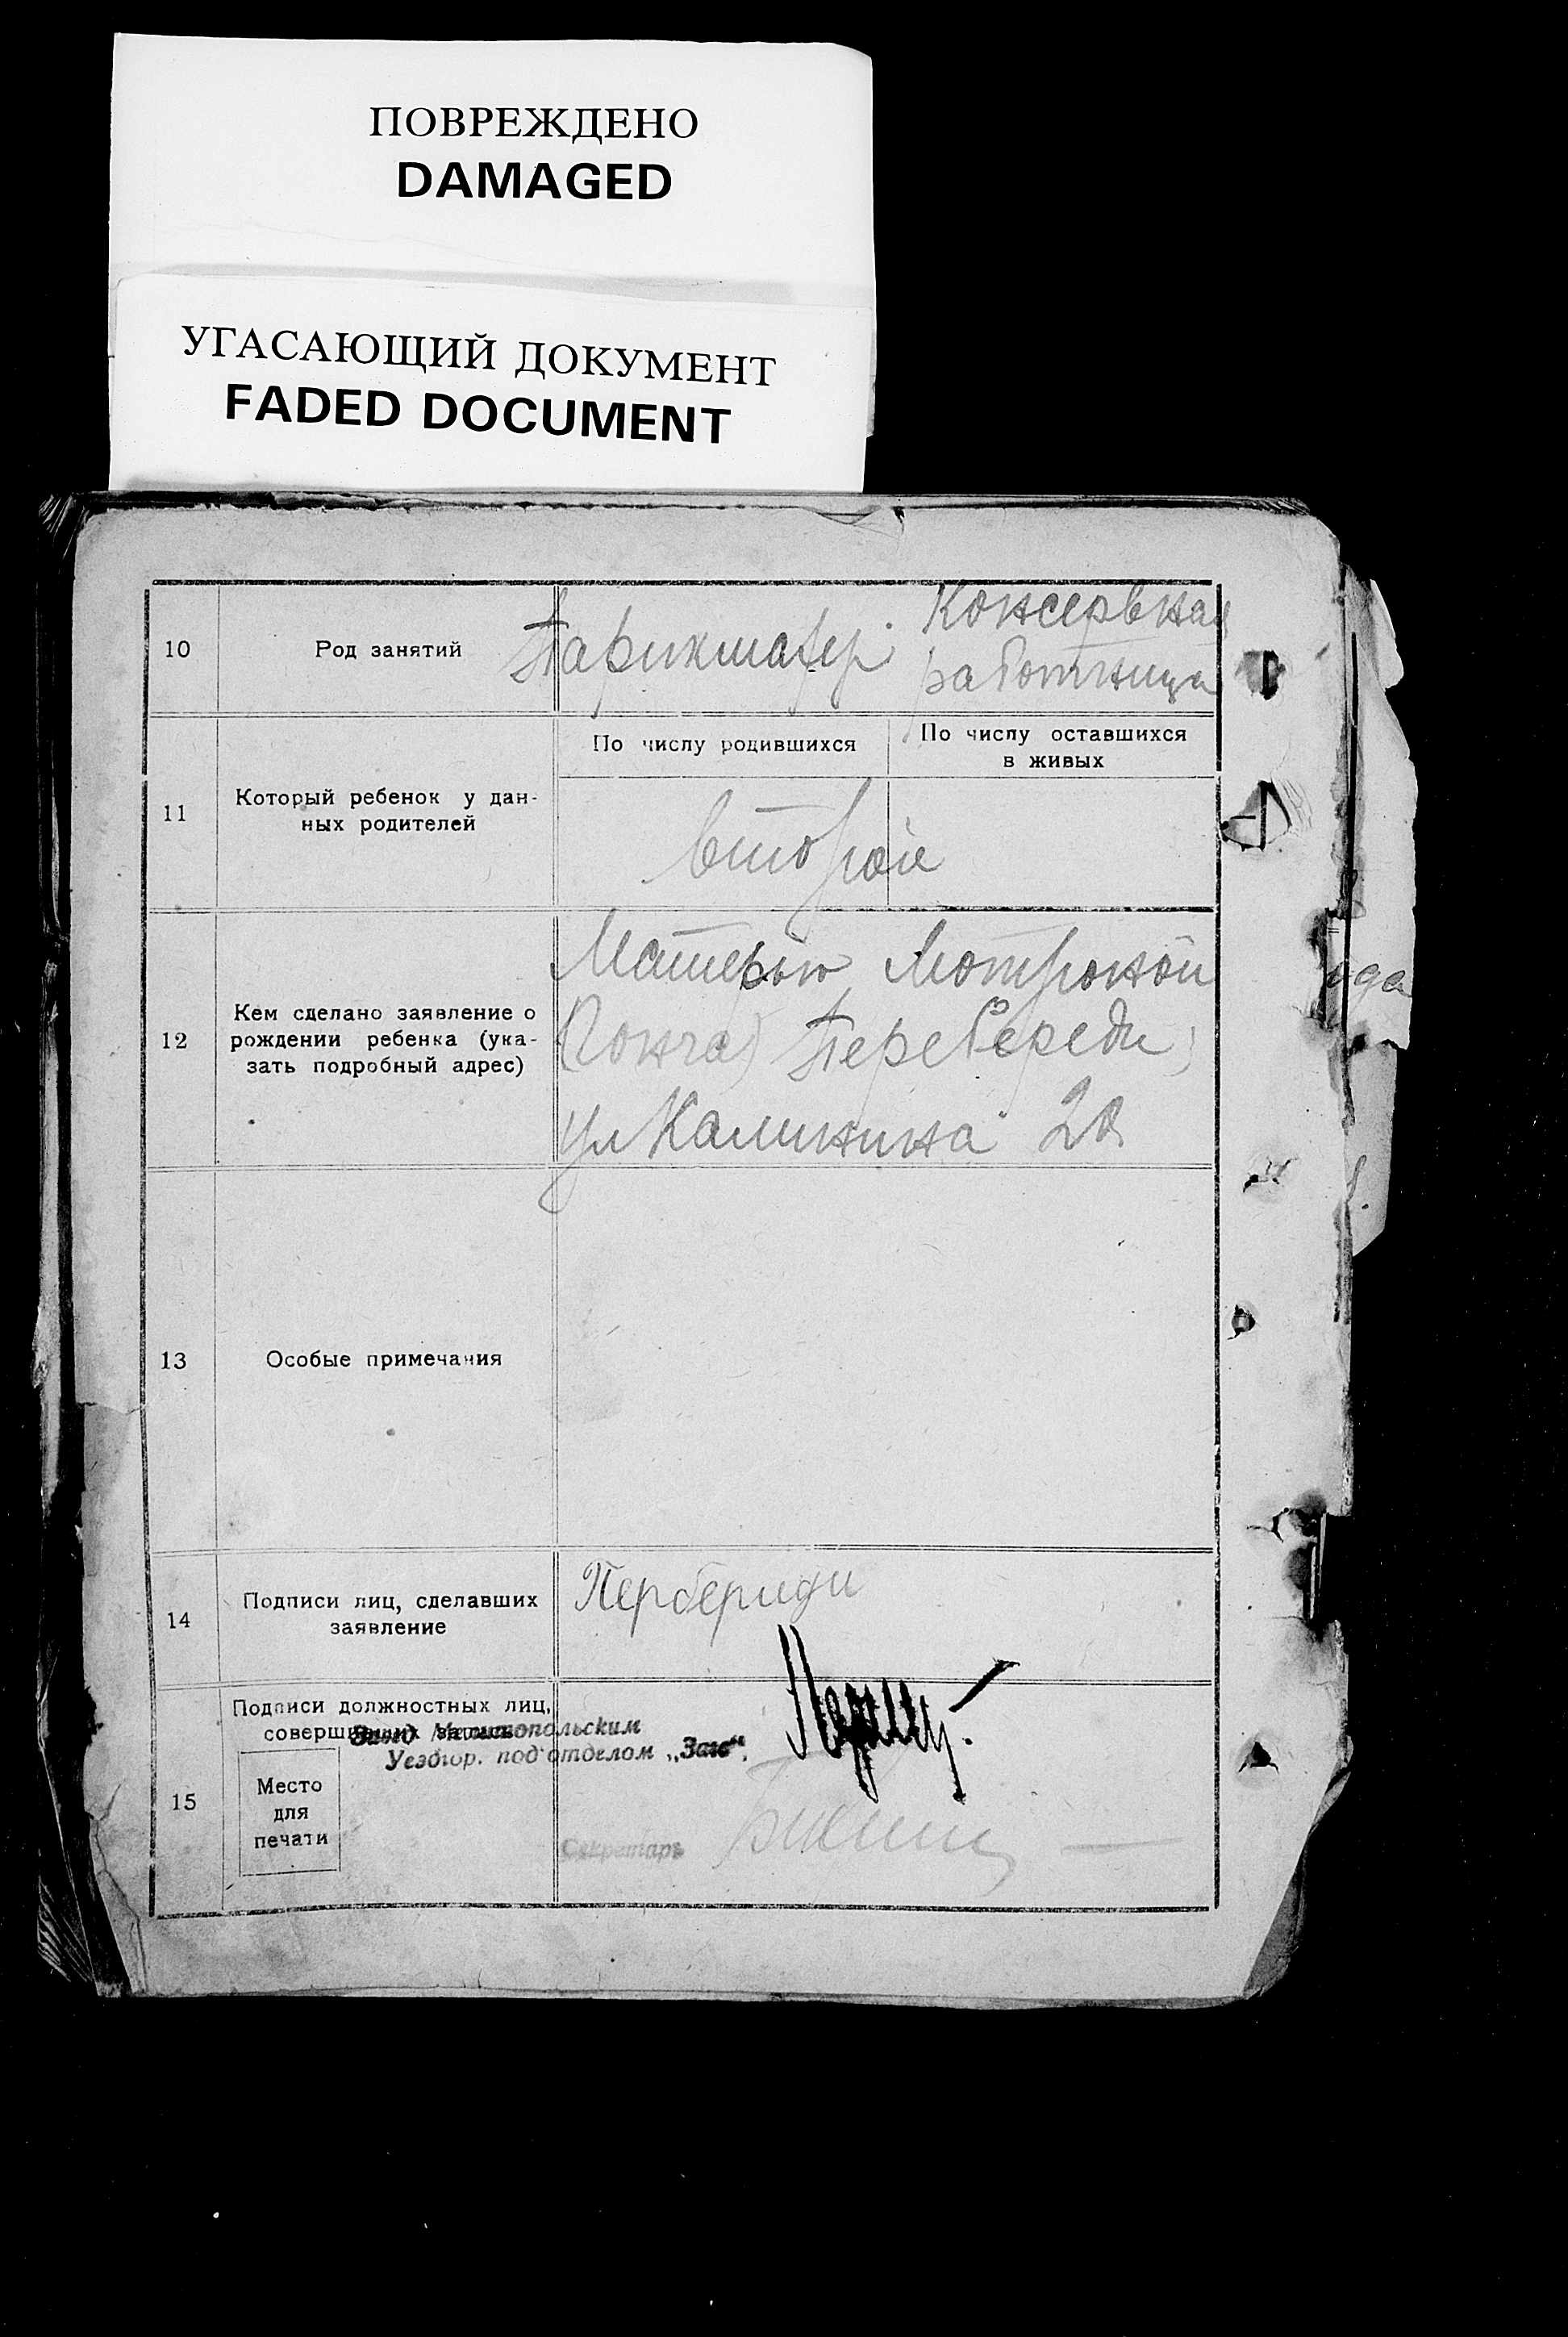 ПОВРЕЖДЕНО
DAMAGED
УГАСАЮЩИЙ ДОКУМЕНТ
FADED DOCUMENT
10
Род занятий
Парикмахер
Консервная
работница
11
Который ребенок у дан-
ных родителей
По числу родившихся
По числу оставшихся
в живых
второй
12
Кем сделано заявление о
рождении ребенка (ука-
зать подробный адрес)
Матерью Мотроной
Перебереди
ул Калинина
13
Особые примечания
14
Подписи лиц, сделавших
заявление
Пербериди
15
Подписи должностных лиц,
совершивших запись
Завед Мелитопольским
Уездгор. под'отделом „Загс“.
Место
для
печати
Секретарь
ода